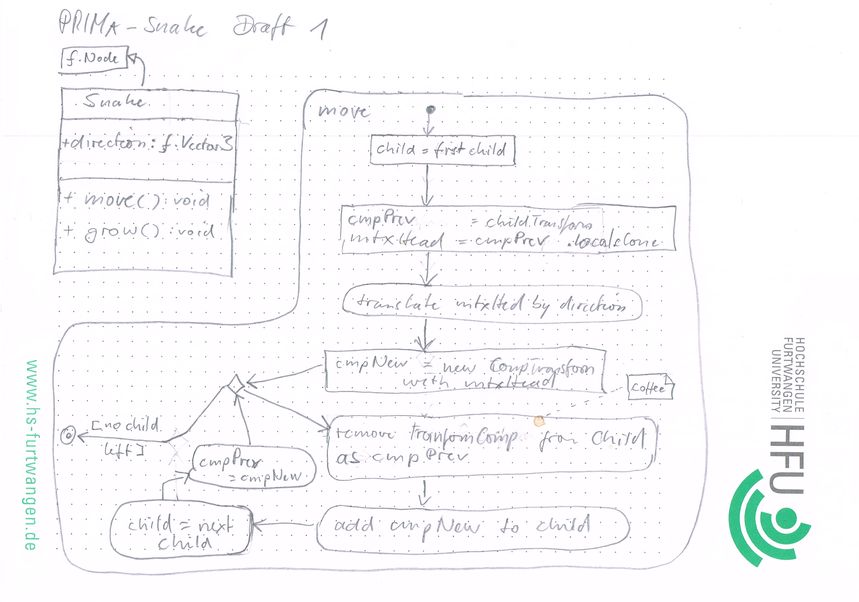 PRIMA - Snake Draft 1
f.Node
Snake
+direction: f.Vector3
+ move(): void
+ grow(): void
move
child = first child
cmpPrev = child.Transform
mtxHead = cmpPrev .local.clone
translate mtxHed by direction
cmpNew = new CompTransform
with mtxHead
Coffee
[no child
left]
remove TransformComp from Child
as cmpPrev
cmpPrev
= cmpNew
add cmpNew to child
child = next
child
www.hs-furtwangen.de
HOCHSCHULE
FURTWANGEN
UNIVERSITY
HFU